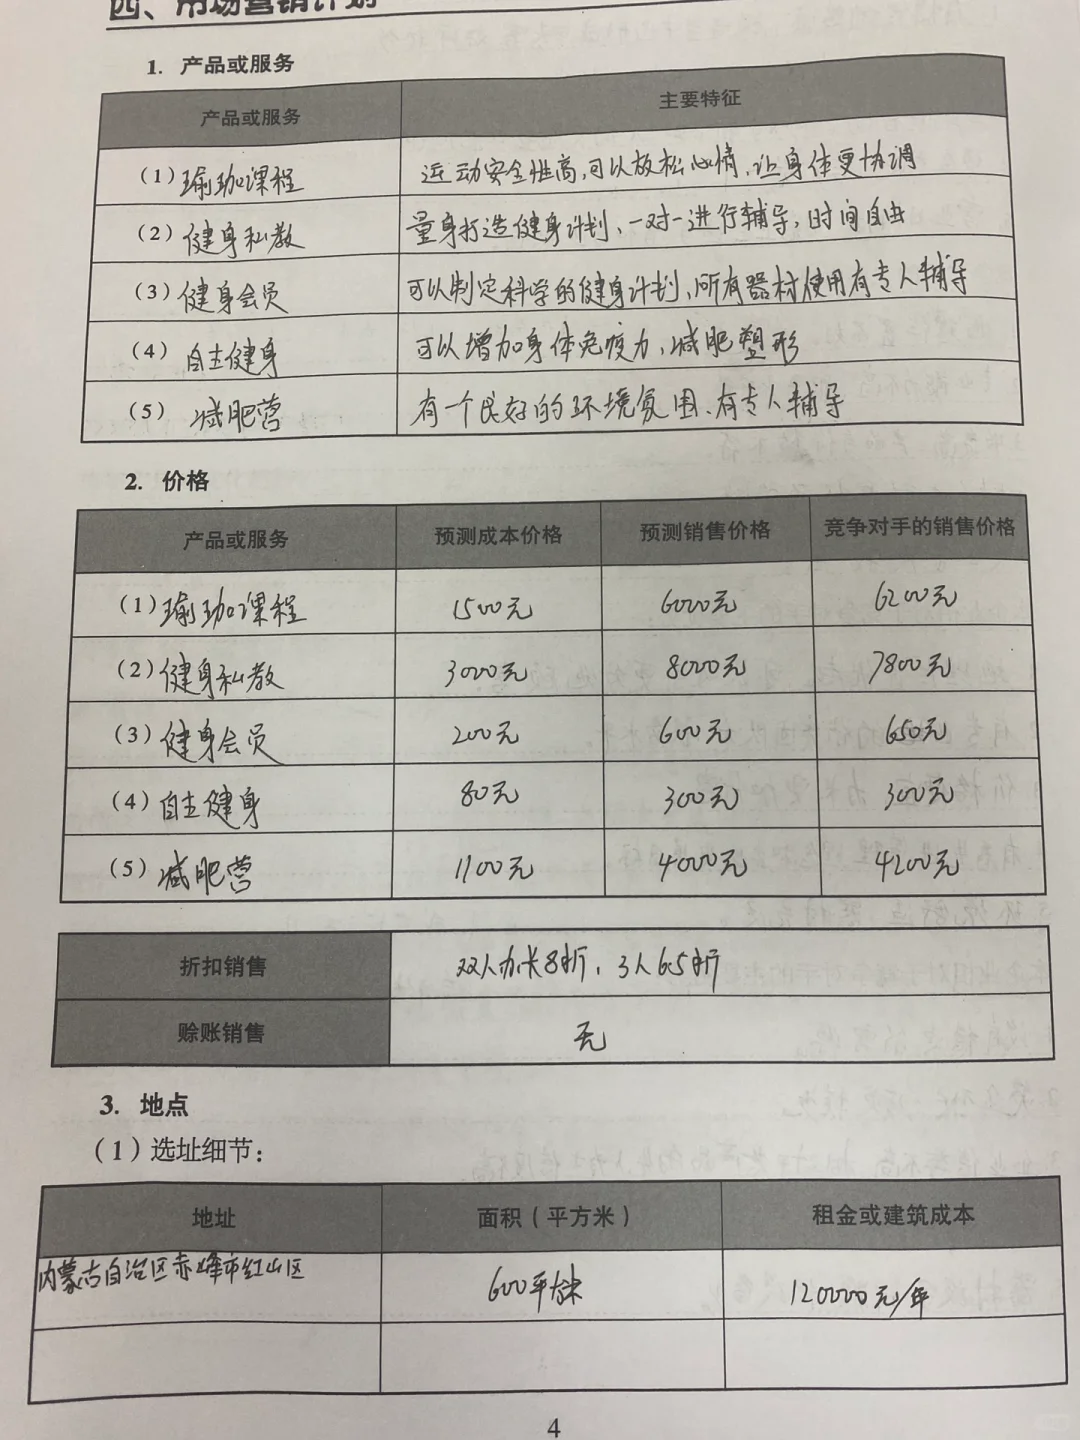 四、市场营销计划
1. 产品或服务
产品或服务 主要特征
(1)瑜珈课程 运动安全性高,可以放松心情、让身体更协调
(2)健身私教 量身打造健身计划、一对一进行辅导,时间自由
(3)健身会员 可以制定科学的健身计划、所有器材使用有专人辅导
(4)自主健身 可以增加身体免疫力、减肥塑形
(5)减肥营 有一个良好的环境氛围、有专人辅导
2. 价格
产品或服务 预测成本价格 预测销售价格 竞争对手的销售价格
(1)瑜珈课程 1500元 6000元 6200元
(2)健身私教 3000元 8000元 7800元
(3)健身会员 200元 600元 650元
(4)自主健身 80元 300元 300元
(5)减肥营 1100元 4000元 4200元
折扣销售 双人办卡8折、3人6.5折
赊账销售 无
3. 地点
(1)选址细节:
地址 面积(平方米) 租金或建筑成本
内蒙古自治区赤峰市红山区 600平方米 120000元/年
4